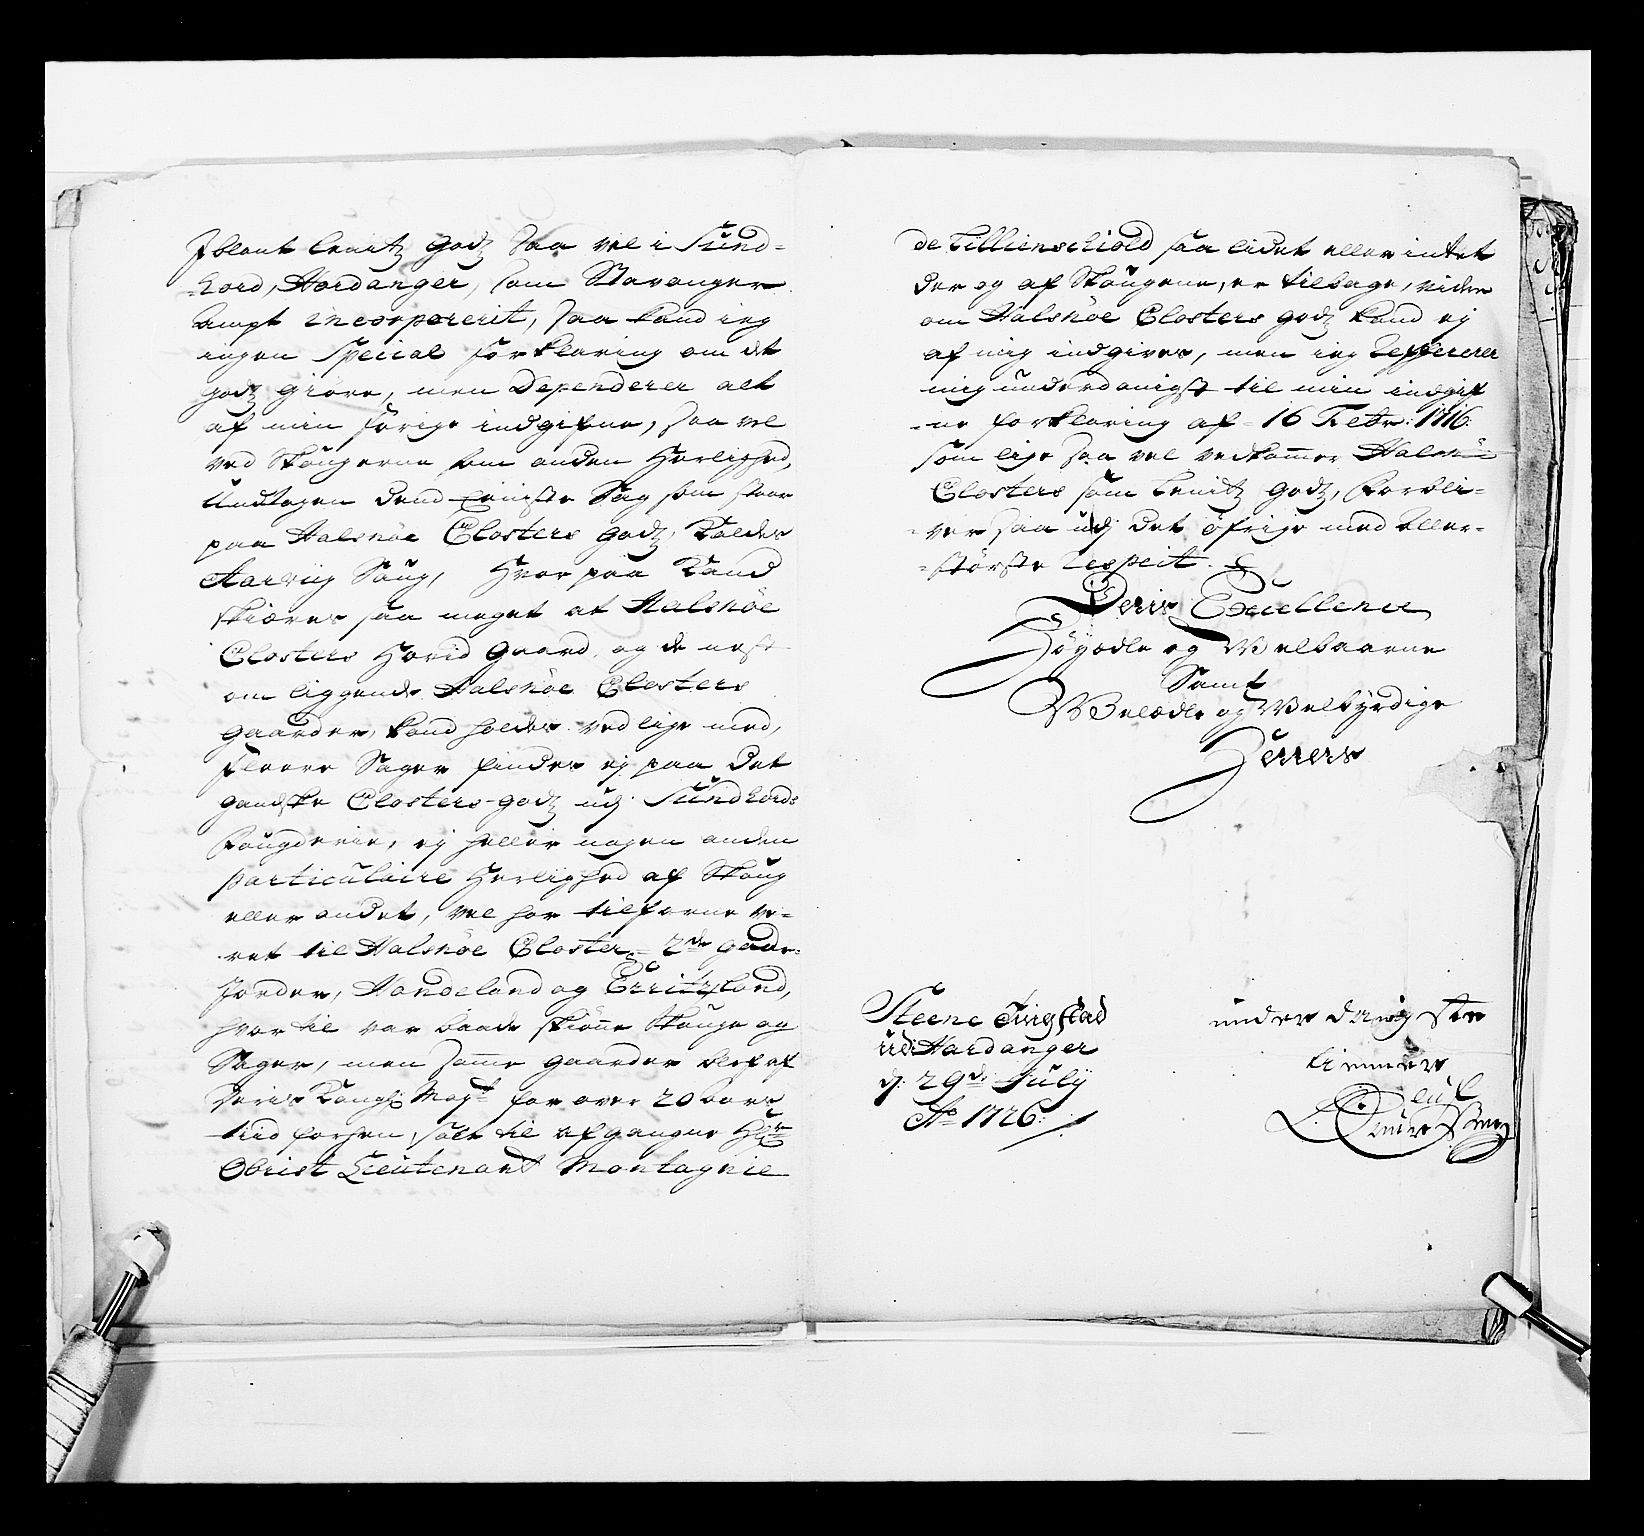 Jblant Lenitz godz saa vel i Sund-
-hord, Hardanger, som Stavanger
Ampt incorporerit, saa kand ieg
ingen Special forklaring om det
godz giøre, men Dependerer alt
af min forige indgifne, saa vel
ved Skougerne som anden Herlighed,
Undtagen dend Eeniste Sag som staar
paa Halsnöe Closters godz, Kaldes
Aarviig Saug, Hvor paa Kand
skiæres saa meget at Halsnöe
Closters Hovid gaard, og de nest
om liggende Halsnöe Closters
gaarder, kand holdes ved lige med,
Fleere Sager findes ej paa det
gandske Closters-godz udj Sundhords
Fougderie, ej heller nogen anden
particulaire Herlighed af Skoug
eller andet, vel har tilforne ve-
ret til Halsnöe Closter 2de gaar-
Jorder, Handeland og Erritzland,
hvor til var baade skiönne Skouge og
Sager, men samme gaarder blef af
Deris Kongl. Mayt. for over 20 aars
tiid forhen, solt til afgangne Hr.
Obrist Lieutenant Montagnie
de Lillienschiold saa lidet eller intet
der og af Skougene, er tilbage, viden
om Halsnöe Closters godz kand ej
af mig indgives, men ieg Refererer
mig underdanigst til min indgif
-ne forklaring af 16 Febr: 1716
som lige saa vel vedkommer Halsnöe
Closters som Lenitz godz, forbli-
-ver saa udj det öfrige med aller-
-störste Respect.
Deris Excellence
Höyædle og Welbaarne
Samt
Welædle og Welbyrdige
Herrers
Steene Tingstad
udi Hardanger
d: 29de July
Ao 1726
underdanigste
tienner